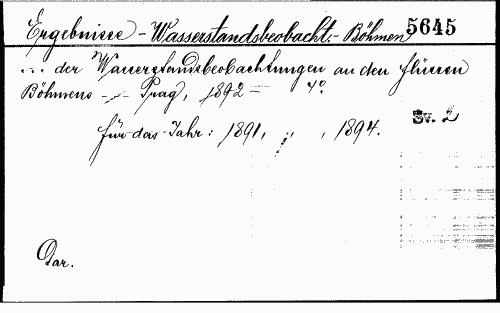 Ergebnisse - Wasserstandsbeobacht. - Böhmen 5645
... der Wasserstandsbeobachtungen an den Flüssen
Böhmens -,- Prag, 1892 - 4°.
Sv. 2
für das Jahr: 1891, ,, , 1894.
Dar.